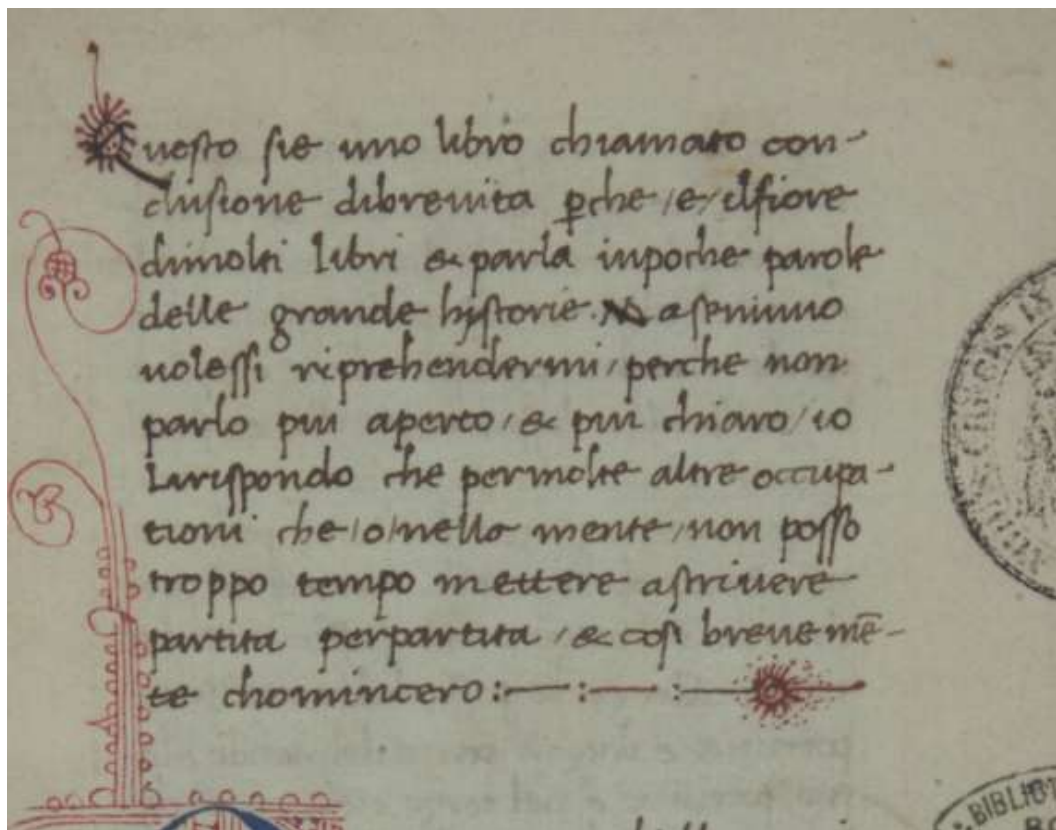 Questo sie uno libro chiamato con-
clusione dibrevita ꝑche /e/ ilfiore
dimolti libri & parla inpoche parole
delle grande hystorie. Ma seniuno
volessi riprehendermi / perche non
parlo piu aperto / & piu chiaro / io
lirispondo che permolte altre occupa-
tioni che /o/ nella mente / non posso
troppo tempo mettere ascrivere
partita perpartita / & cosi breve mē-
te chomincero :— : — : —
BIBLIOT